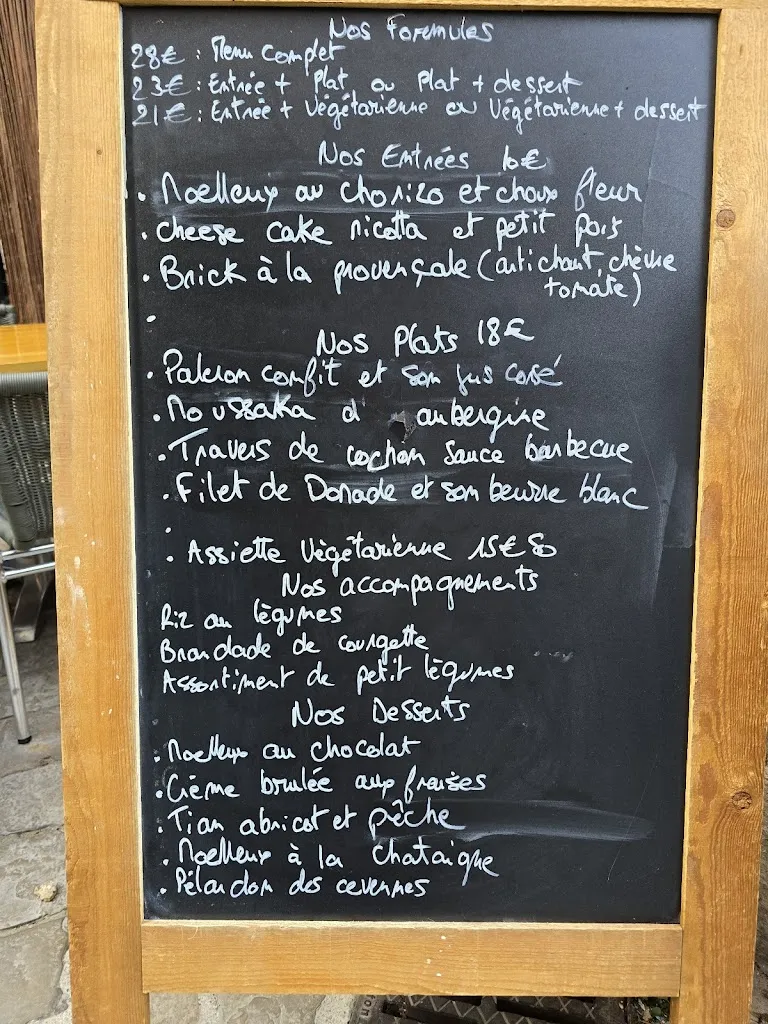 Nos Formules
28€ : Menu complet
23€ : Entrée + Plat ou Plat + dessert
21€ : Entrée + Végétarienne ou Végétarienne + dessert
Nos Entrées 10€
. Moelleux au chorizo et choux fleur
. cheese cake ricotta et petit pois
. Brick à la provençale (artichaut, chèvre
tomate)
.
Nos Plats 18€
. Paleron confit et son jus corsé
. Moussaka d'aubergine
. Travers de cochon sauce barbecue
. Filet de Dorade et son beurre blanc
.
. Assiette Végétarienne 15€50
Nos accompagnements
Riz au légumes
Brandade de courgette
Assortiment de petit légumes
Nos Desserts
. Moelleux au chocolat
. Crème brulée aux fraises
. Tian abricot et pêche
. Moelleux à la chataigne
. Pélardon des cevennes